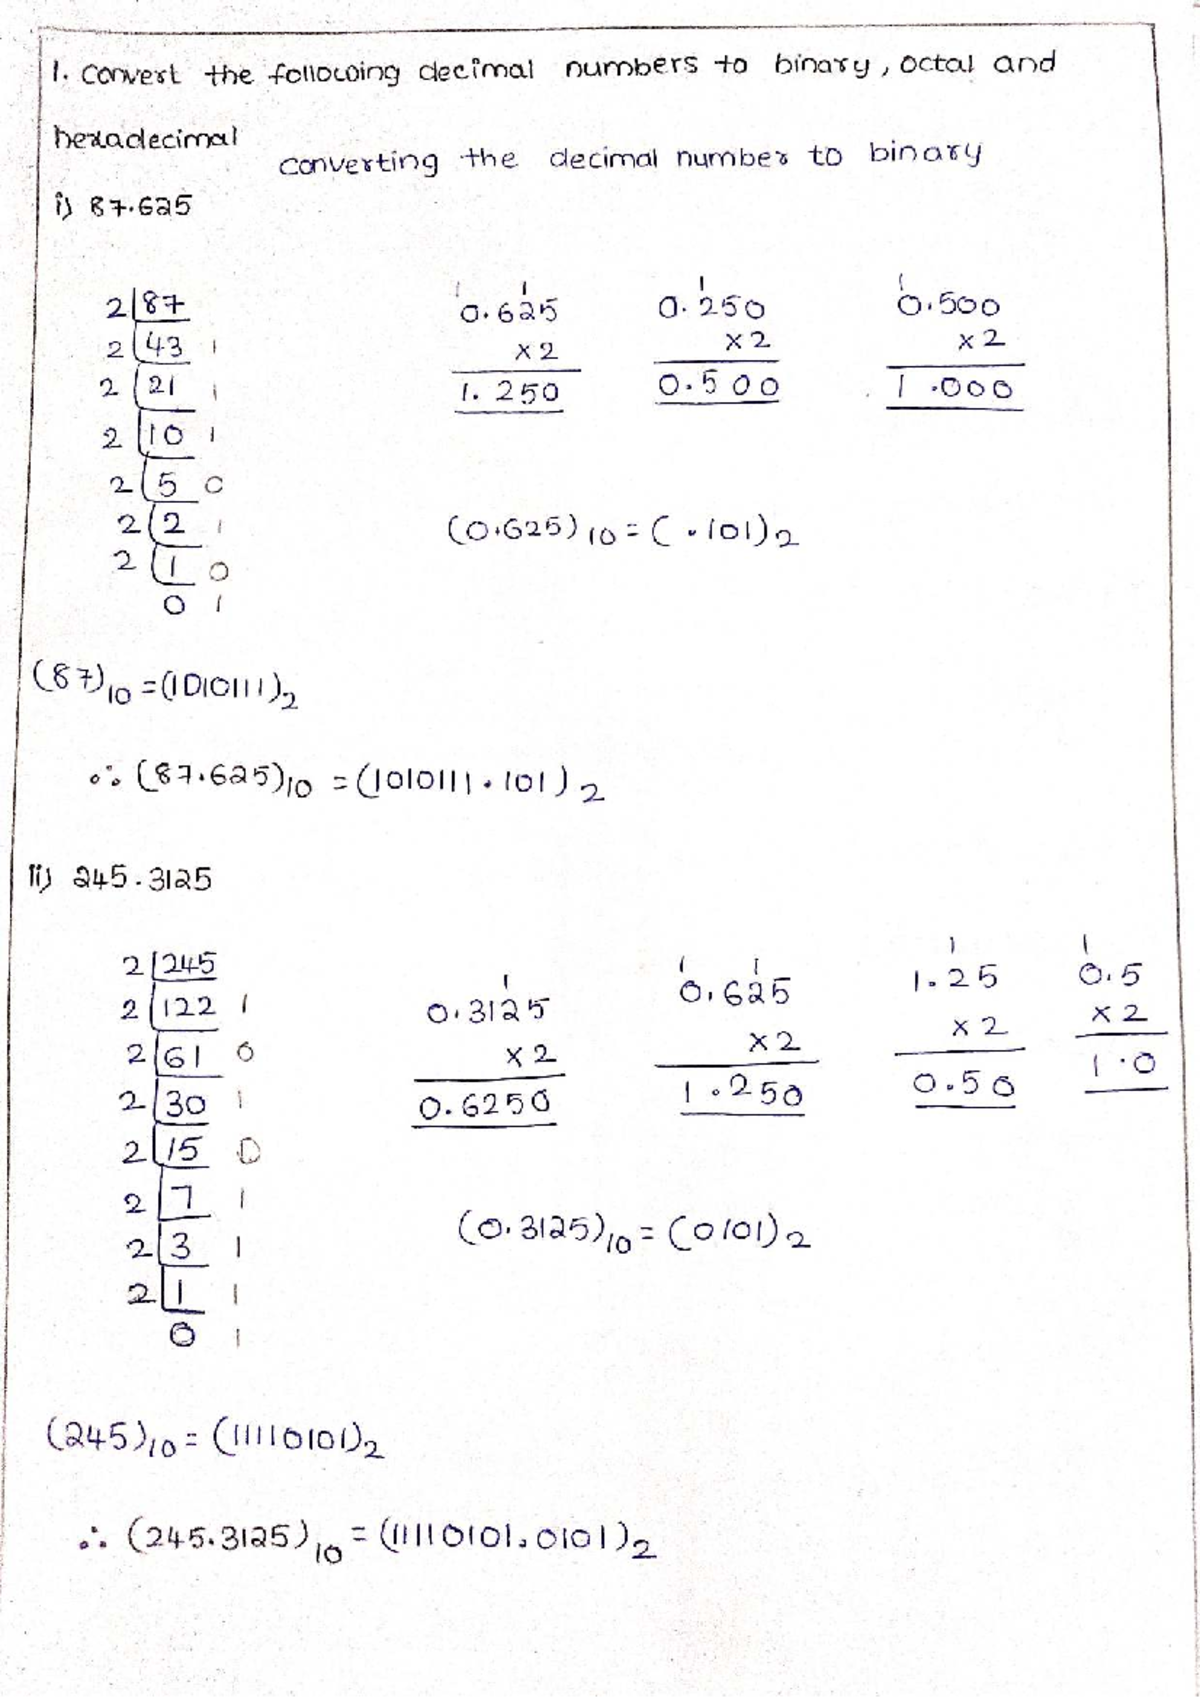 1. Convert the following decimal numbers to binary, octal and
hexadecimal
converting the decimal number to binary
i) 87.625
2 87
2 43 1
2 21 1
2 10 1
2 5 0
2 2 1
2 1 0
0 1
1 1
0.625
×2
1.250
1
0.250
×2
0.500
1
0.500
×2
1.000
(0.625)10 = (.101)2
(87)10 = (1010111)2
∴ (87.625)10 = (1010111.101)2
ii) 245.3125
2 245
2 122 1
2 61 0
2 30 1
2 15 0
2 7 1
2 3 1
2 1 1
0 1
1
0.3125
×2
0.6250
1 1
0.625
×2
1.250
1
1.25
×2
0.50
1
0.5
×2
1.0
(0.3125)10 = (0101)2
(245)10 = (11110101)2
∴ (245.3125)10 = (11110101.0101)2